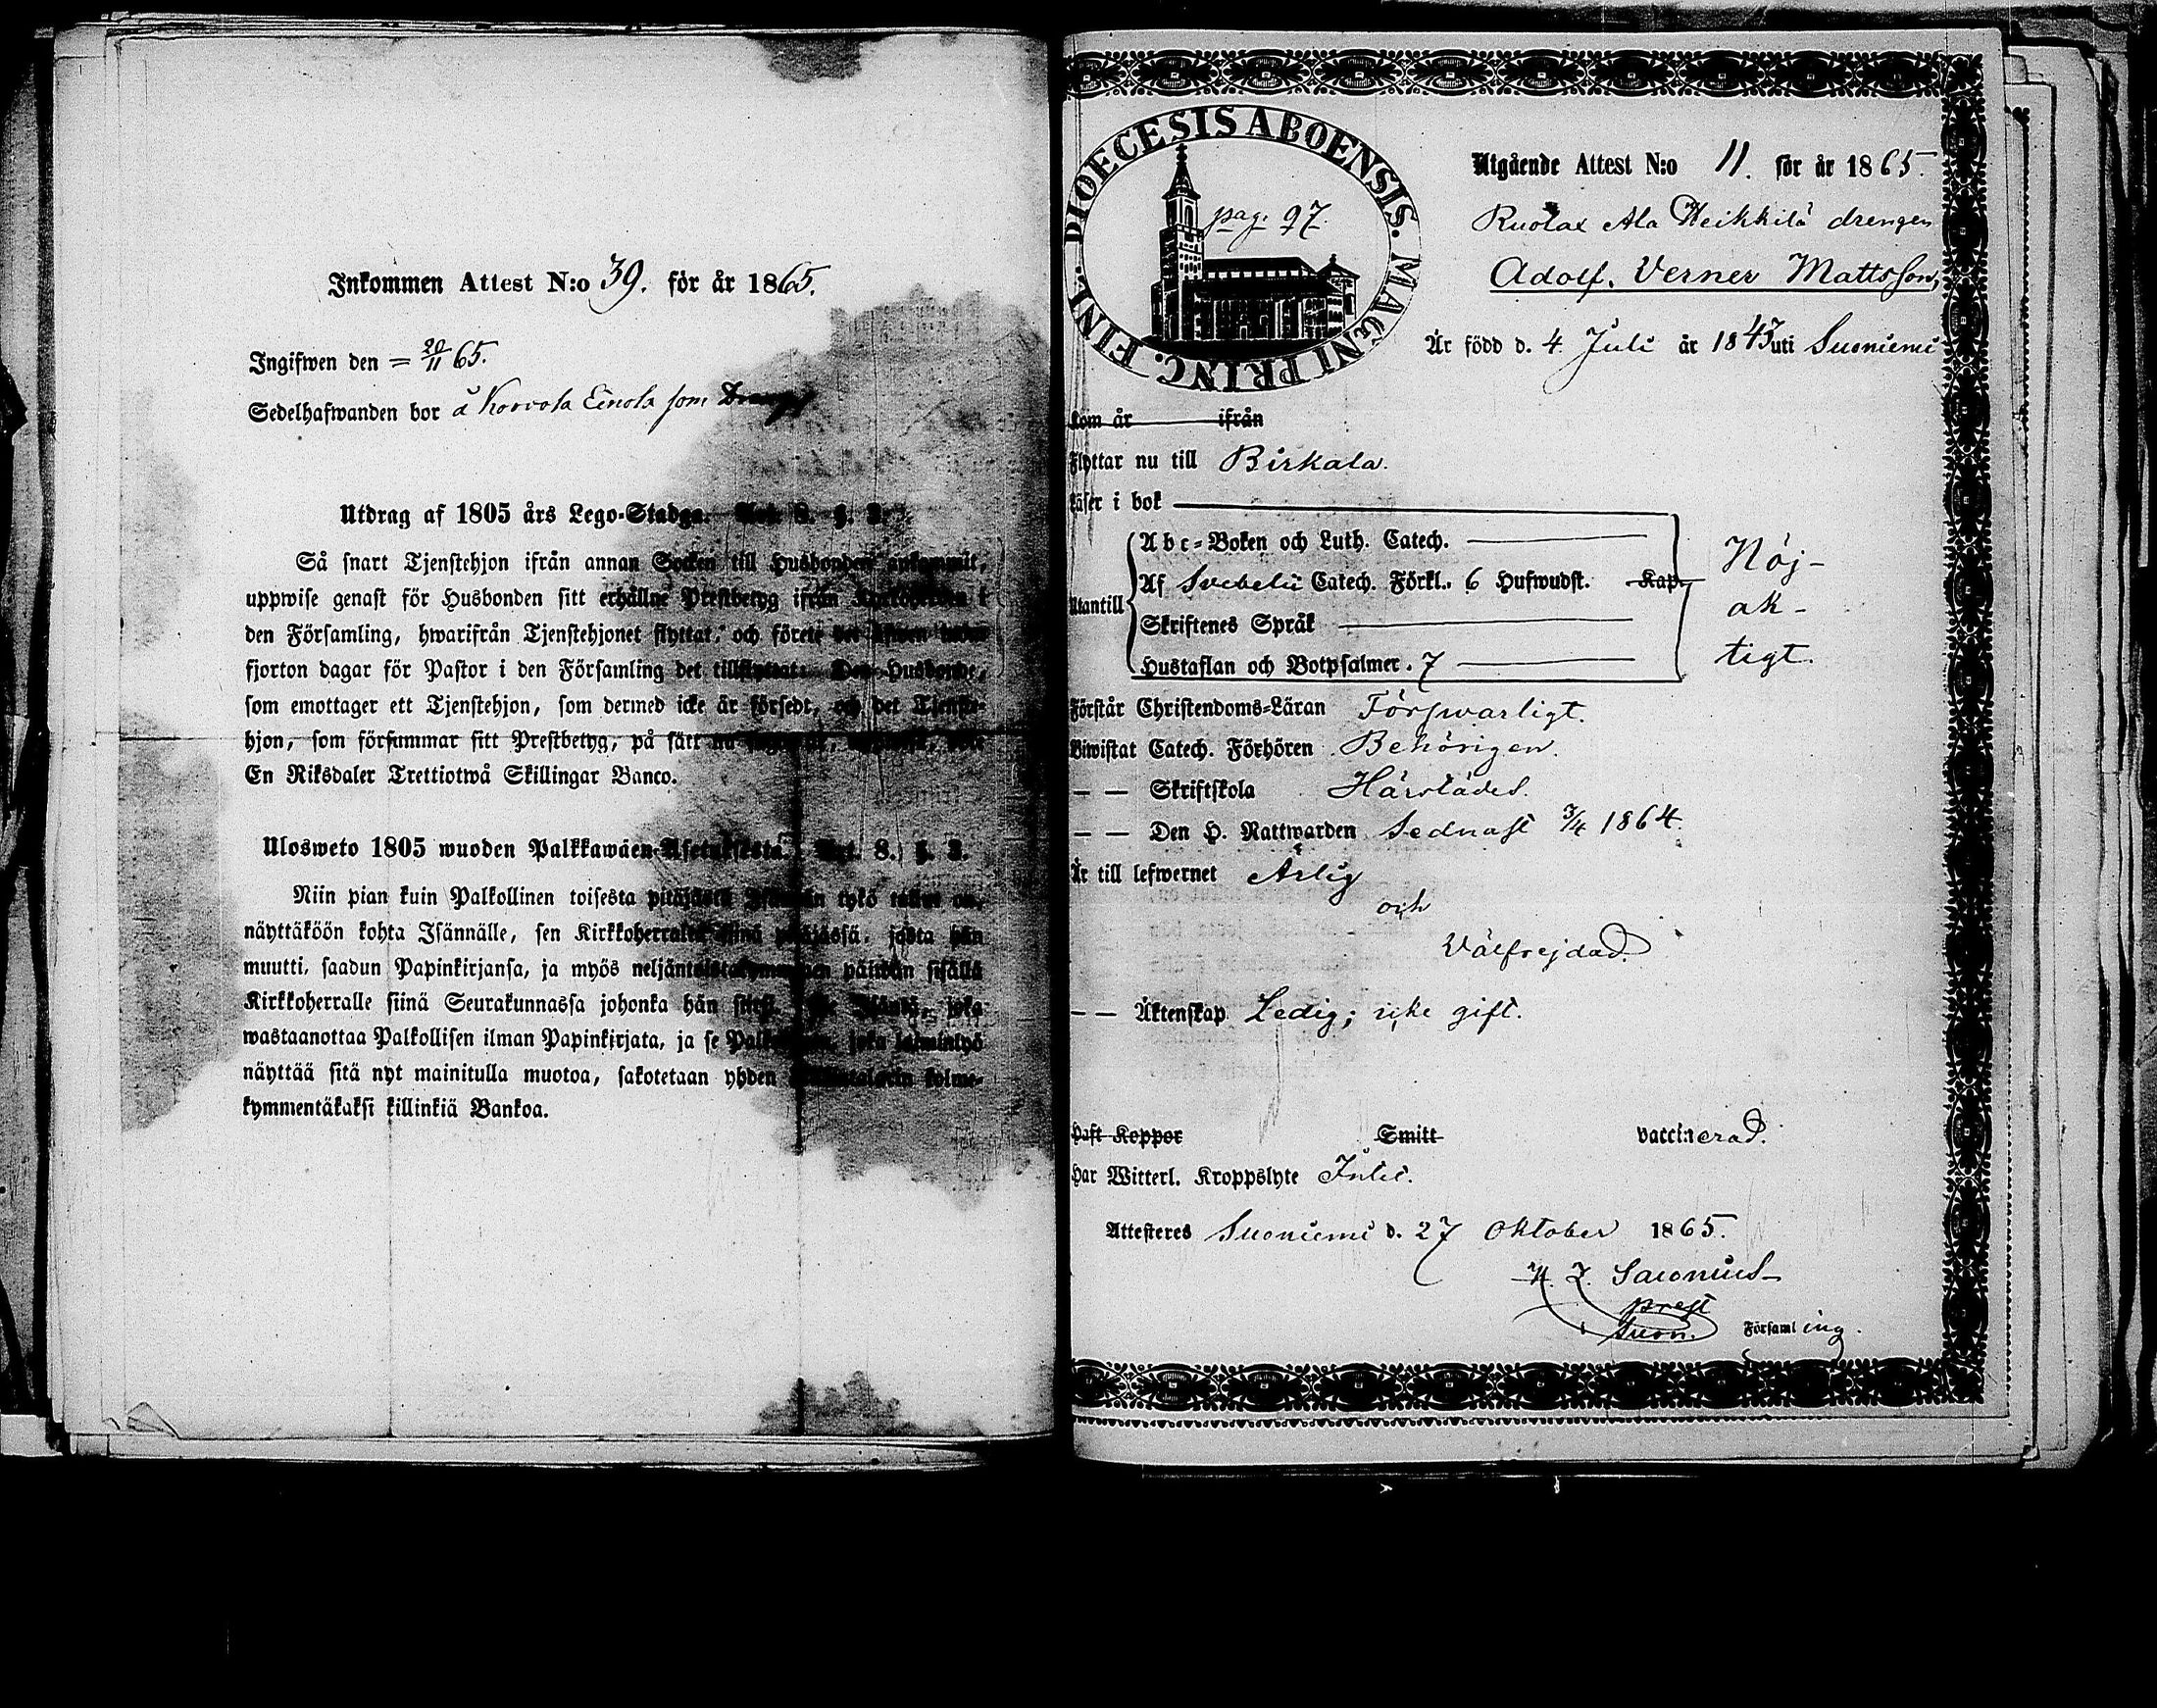 Inkommen Attest N:o 39. för år 1865.
Ingifwen den = 20/11 65.
Sedelhafwanden bor å Korvola Einola som
Utdrag af 1805 års Lego-Stadga. Art. 8. §. 2.
Så snart Tjenstehjon ifrån annan Socken till Husbonden ankommit,
uppwise genast för Husbonden sitt erhållne Prestbetyg ifrån Kyrkoherden i
den Församling, hwarifrån Tjenstehjonet flyttat, och förete det äfwen inom
fjorton dagar för Pastor i den Församling det tillflyttat. Den Husbonde,
som emottager ett Tjenstehjon, som dermed icke är försedt, och det Tjenste-
hjon, som försummar sitt Prestbetyg, på sätt nu
En Riksdaler Trettiotwå Skillingar Banco.
Ulosweto 1805 wuoden Palkkawäen-Asetuksesta. Art. 8. §. 2.
Niin pian kuin Palkollinen toisesta pitäjästä Isännän tykö tullut on,
näyttäköön kohta Isännälle, sen Kirkkoherralta siinä pitäjässä, josta hän
muutti, saadun Papinkirjansa, ja myös neljäntoistakymmenen päiwän sisällä
Kirkkoherralle siinä Seurakunnassa johonka hän siirsi. Se Isäntä, joka
wastaanottaa Palkollisen ilman Papinkirjata, ja se Palkollinen, joka laiminlyö
näyttää sitä nyt mainitulla muotoa, sakotetaan yhden kolme-
kymmentäkaksi killinkiä Bankoa.
DIOECESIS ABOENSIS. MAGNI PRINC. FINL.
pag. 97.
Utgående Attest N:o 11. för år 1865.
Ruolax Ala Heikkilä drengen
Adolf. Verner Mattsson,
Är född d. 4 Juli år 1843 uti Suoniemi
Kom år ifrån
Flyttar nu till Birkala.
Läser i bok
Abc-Boken och Luth. Catech.
Af Svebelii Catech. Förkl. 6 Hufwudst. Kap.
Utantill
Skriftenes Språk
Hustaflan och Botpsalmer. 7
Nöj-
ak-
tigt.
Förstår Christendoms-Läran Försvarligt.
Biwistat Catech. Förhören Behörigen.
— — Skriftskola Härstädes.
— — Den H. Nattwarden Sednast 3/4 1864.
Är till lefwernet Ärlig
och
Välfrejdad.
— — Äktenskap Ledig; icke gift.
Haft Koppor Smitt vaccinerad.
Har Witterl. Kroppslyte Intet.
Attesteres Suoniemi d. 27 Oktober 1865.
Salonius
prest
i Suon. Församling.